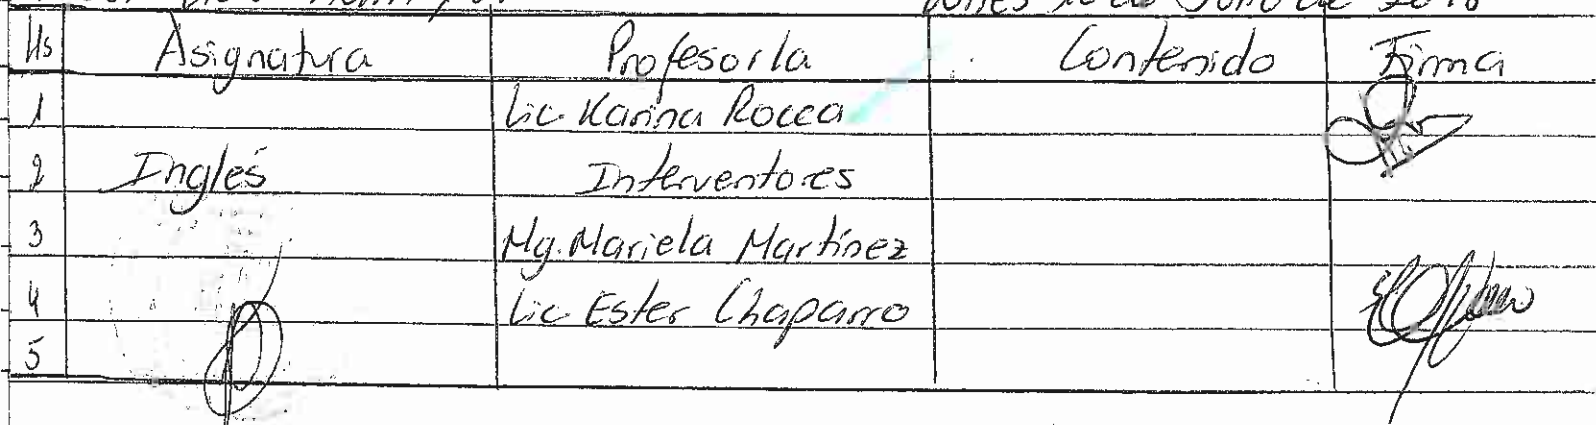 Hs Asignatura Profesor/a Contenido Firma
1 Lic. Karina Rocca
2 Inglés Interventores
3 Mg. Mariela Martínez
4 Lic Ester Chaparro
5